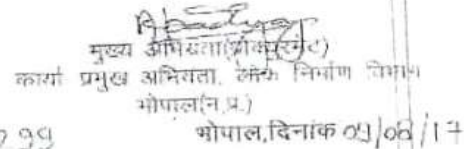 मुख्य अभियंता(प्रोक्यूरमेंट)
कार्या प्रमुख अभियंता, लोक निर्माण विभाग
भोपाल(म.प्र.)
299 भोपाल,दिनांक 09/08/17